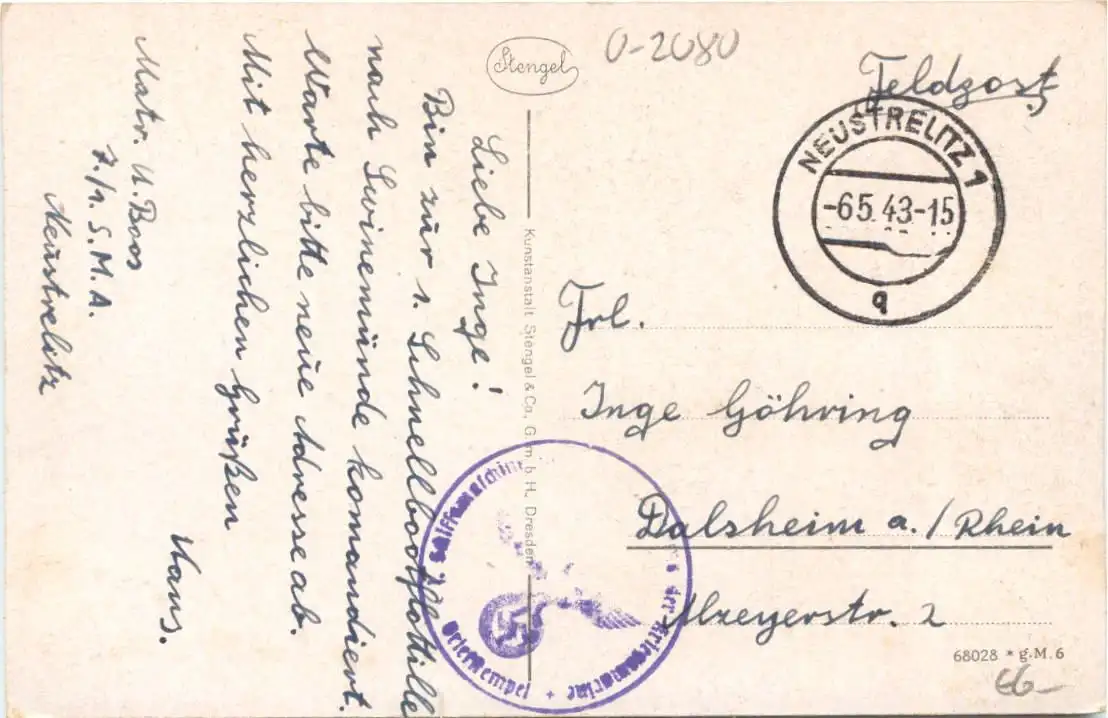 Liebe Inge!
Bin zur 1. Schnellbootflottille
nach Swinemünde komandiert.
Warte bitte neue Adresse ab.
Mit herzlichen Grüßen
Hans.
Matr. H. Boos
7./1. S.M.A.
Neustrelitz
Stengel
Kunstanstalt Stengel & Co., G. m. b. H., Dresden
0-2080
Feldpost
NEUSTRELITZ 1
-6.5.43-15
q
Frl.
Inge Göhring
Dalsheim a./Rhein
Alzeyerstr. 2
der Kriegsmarine
Briefstempel
68028 * g.M.6